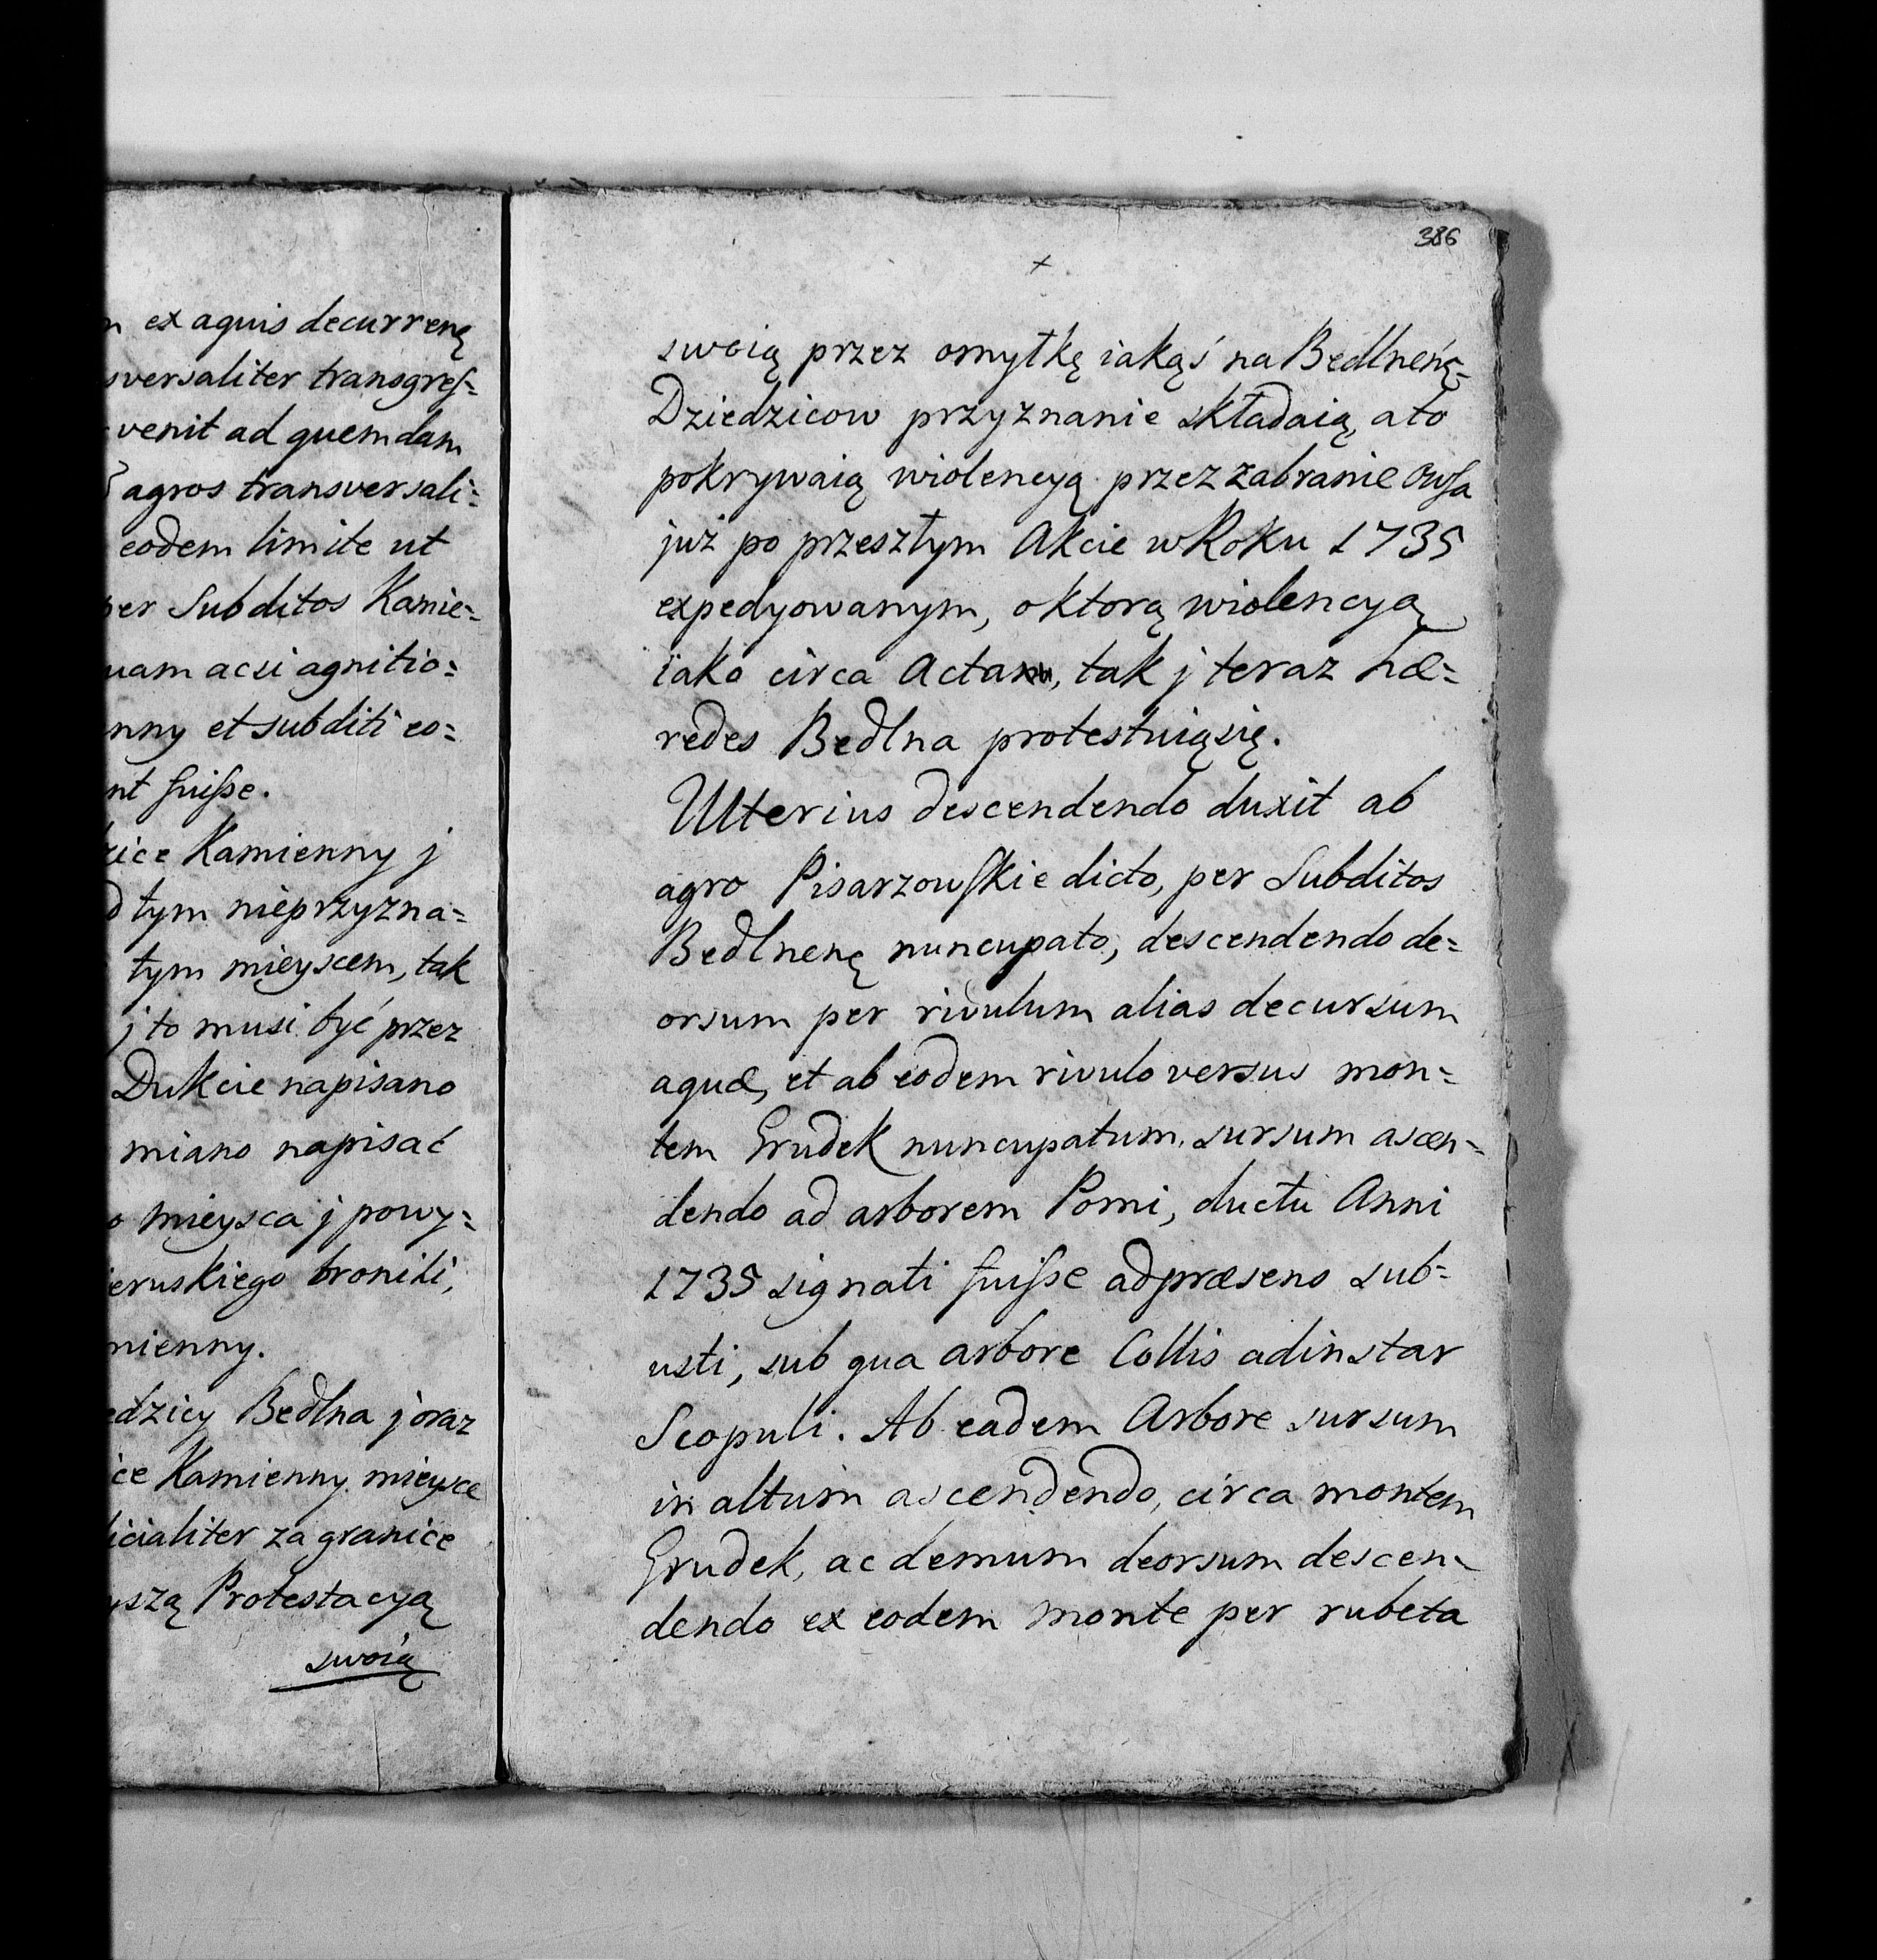 n ex aquis decurrenę
sversaliter transgreſ=
venit ad quemdam
agros transversali=
eodem limite ut
per Subditos Kamie=
uam acsi agnitio=
nny et subditi eo=
nt fuiſse.
zice Kamienny j
d tym nieprzyzna=
tym mieyscem, tak
j to musi być przez
Dukcie napisano
miano napisać
o mieysca j powy=
eruskiego bronili,
mienny.
edzicy Bedlna j oraz
ice Kamienny mieysce
licialiter za granice
yszą Protestacyą
swoią
386
swoią przez omyłkę iakąś na Bedlneńę=
Dziedzicow przyznanie składaią, a to
pokrywaią wiolencyą przez zabranie Owſa
już po przeszłym Akcie w Roku 1735
expedyowanym, o ktorą wiolencyą
iako circa Acta, tak j teraz hæ=
redes Bedlna protestuią się.
Ulterius descendendo duxit ab
agro Pisarzowſkie dicto, per Subditos
Bedlnenę nuncupato, descendendo de=
orsum per rivulum alias decursum
aquæ, et ab eodem rivulo versus mon=
tem Grudek nuncupatum, sursum ascen=
dendo ad arborem Pomi, ductu Anni
1735 signati fuiſse ad præsens sub=
usti, sub qua arbore Collis adinstar
Scopuli. Ab eadem Arbore sursum
in altum ascendendo, circa montem
Grudek, ac demum deorsum descen=
dendo ex eodem monte per rubeta